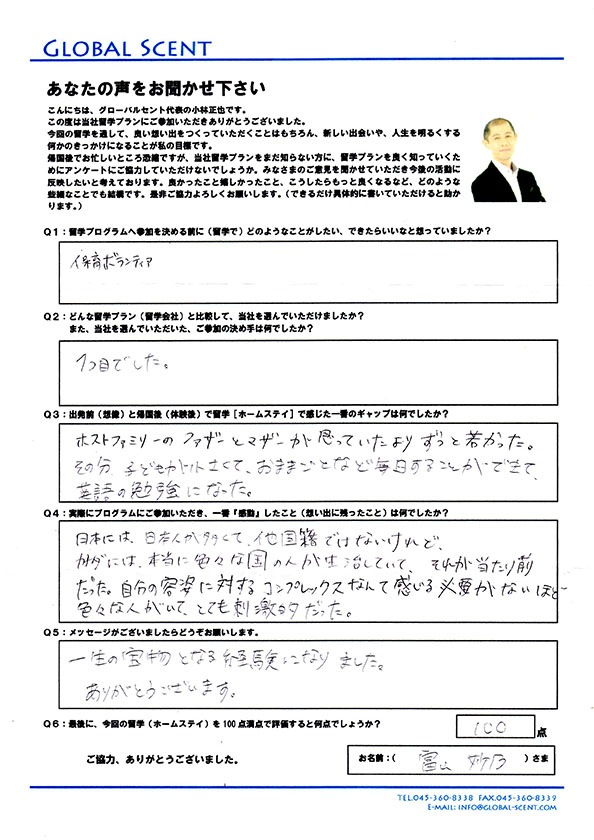 GLOBAL SCENT
あなたの声をお聞かせ下さい
こんにちは、グローバルセント代表の小林正也です。
この度は当社留学プランにご参加いただきありがとうございました。
今回の留学を通して、良い想い出をつくっていただくことはもちろん、新しい出会いや、人生を明るくする
何かのきっかけになることが私の目標です。
帰国後でお忙しいところ恐縮ですが、当社留学プランをまだ知らない方に、留学プランを良く知っていくた
めにアンケートにご協力していただけないでしょうか。みなさまのご意見を聞かせていただき今後の活動に
反映したいと考えております。良かったこと嬉しかったこと、こうしたらもっと良くなるなど、どのような
些細なことでも結構です。是非ご協力よろしくお願いします。(できるだけ具体的に書いていただけると助か
ります。)
Q1:留学プログラムへ参加を決める前に(留学で)どのようなことがしたい、できたらいいなと想っていましたか?
保育ボランティア
Q2:どんな留学プラン(留学会社)と比較して、当社を選んでいただけましたか?
また、当社を選んでいただいた、ご参加の決め手は何でしたか?
1つ目でした。
Q3:出発前(想像)と帰国後(体験後)で留学[ホームステイ]で感じた一番のギャップは何でしたか?
ホストファミリーの ファザーとマザーが思っていたよりずっと若かった。
その分、子どもが小さくて、おままごとなど毎日することができて、
英語の勉強になった。
Q4:実際にプログラムにご参加いただき、一番『感動』したこと(想い出に残ったこと)は何でしたか?
日本には、日本人が多くて、他国籍ではないけれど、
カナダには、本当に色々な国の人が生活していて、それが当たり前
だった。自分の容姿に対するコンプレックスなんて感じる必要がないほど
色々な人がいて、とても刺激的だった。
Q5:メッセージがございましたらどうぞお願いします。
一生の宝物となる経験になりました。
ありがとうございます。
Q6:最後に、今回の留学(ホームステイ)を100点満点で評価すると何点でしょうか?
100 点
ご協力、ありがとうございました。
お名前:( 富山 )さま
TEL.045-360-8338 FAX.045-360-8339
E-MAIL: INFO@GLOBAL-SCENT.COM